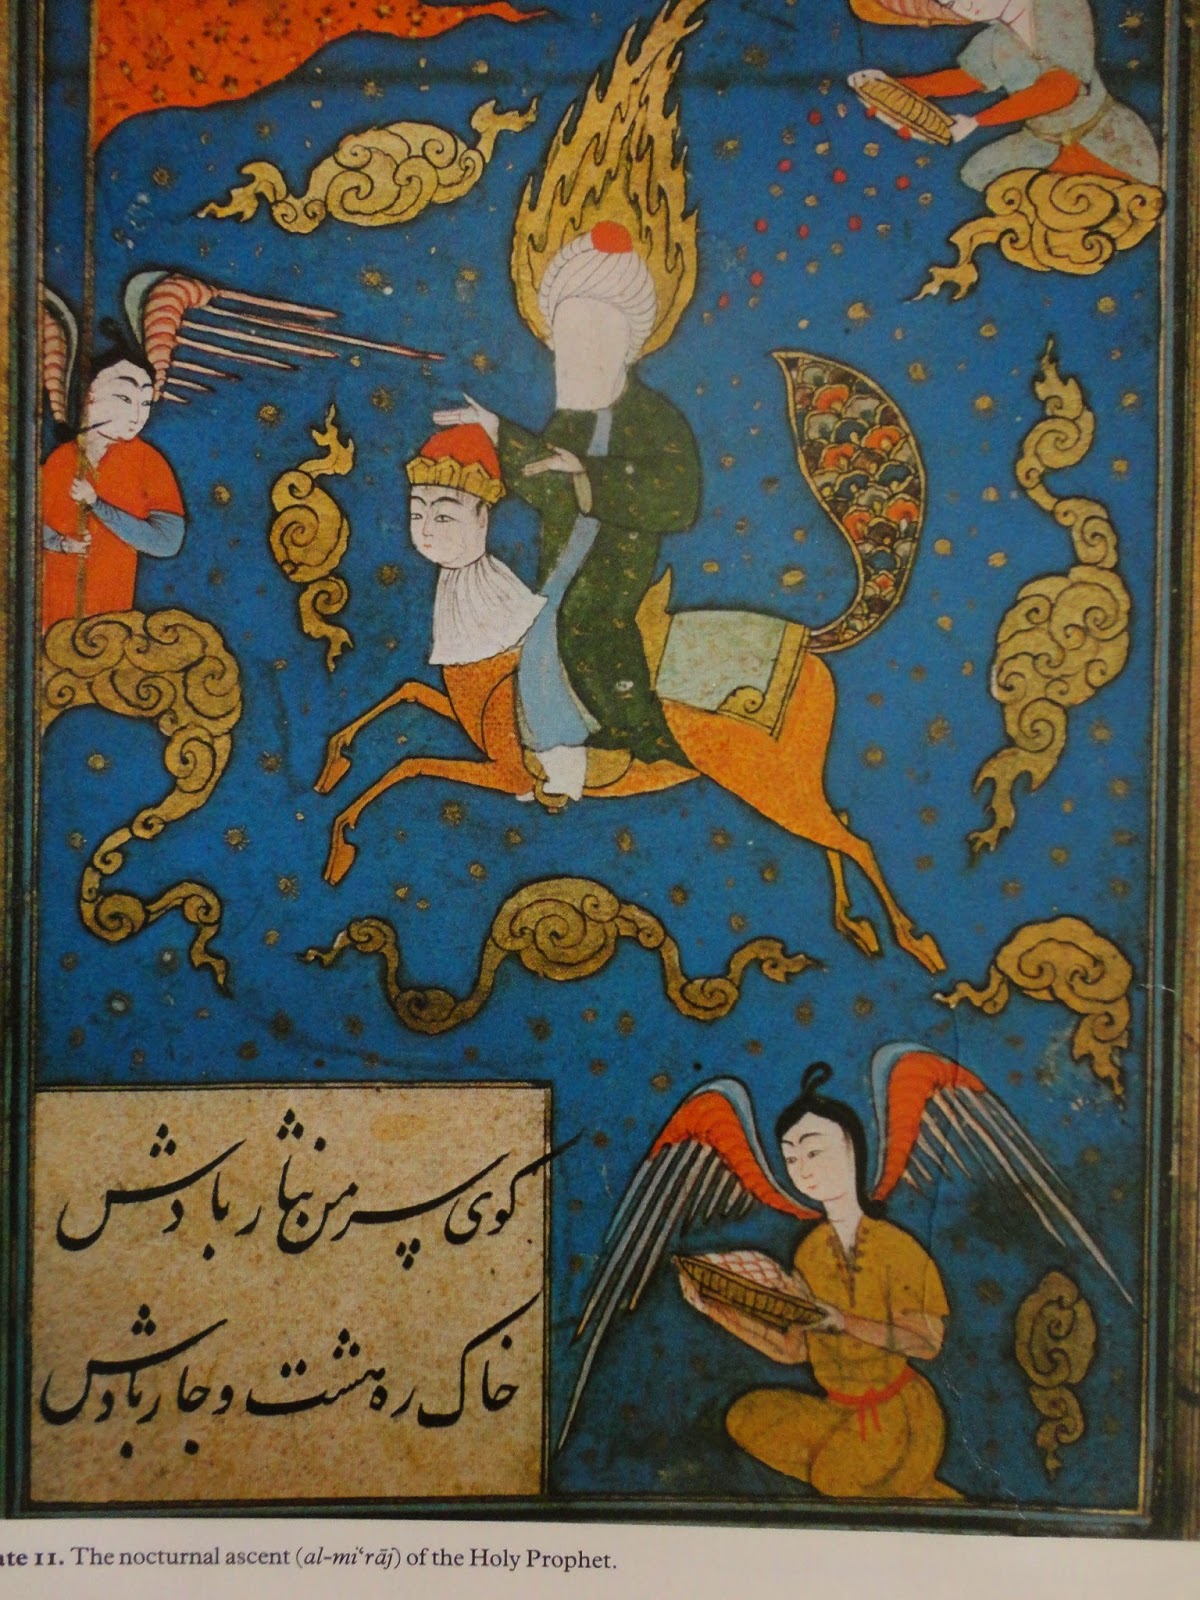 کوی سر من نثار بادش
خاک ره هشت و جار بادش
ate 11. The nocturnal ascent (al-miʿrāj) of the Holy Prophet.